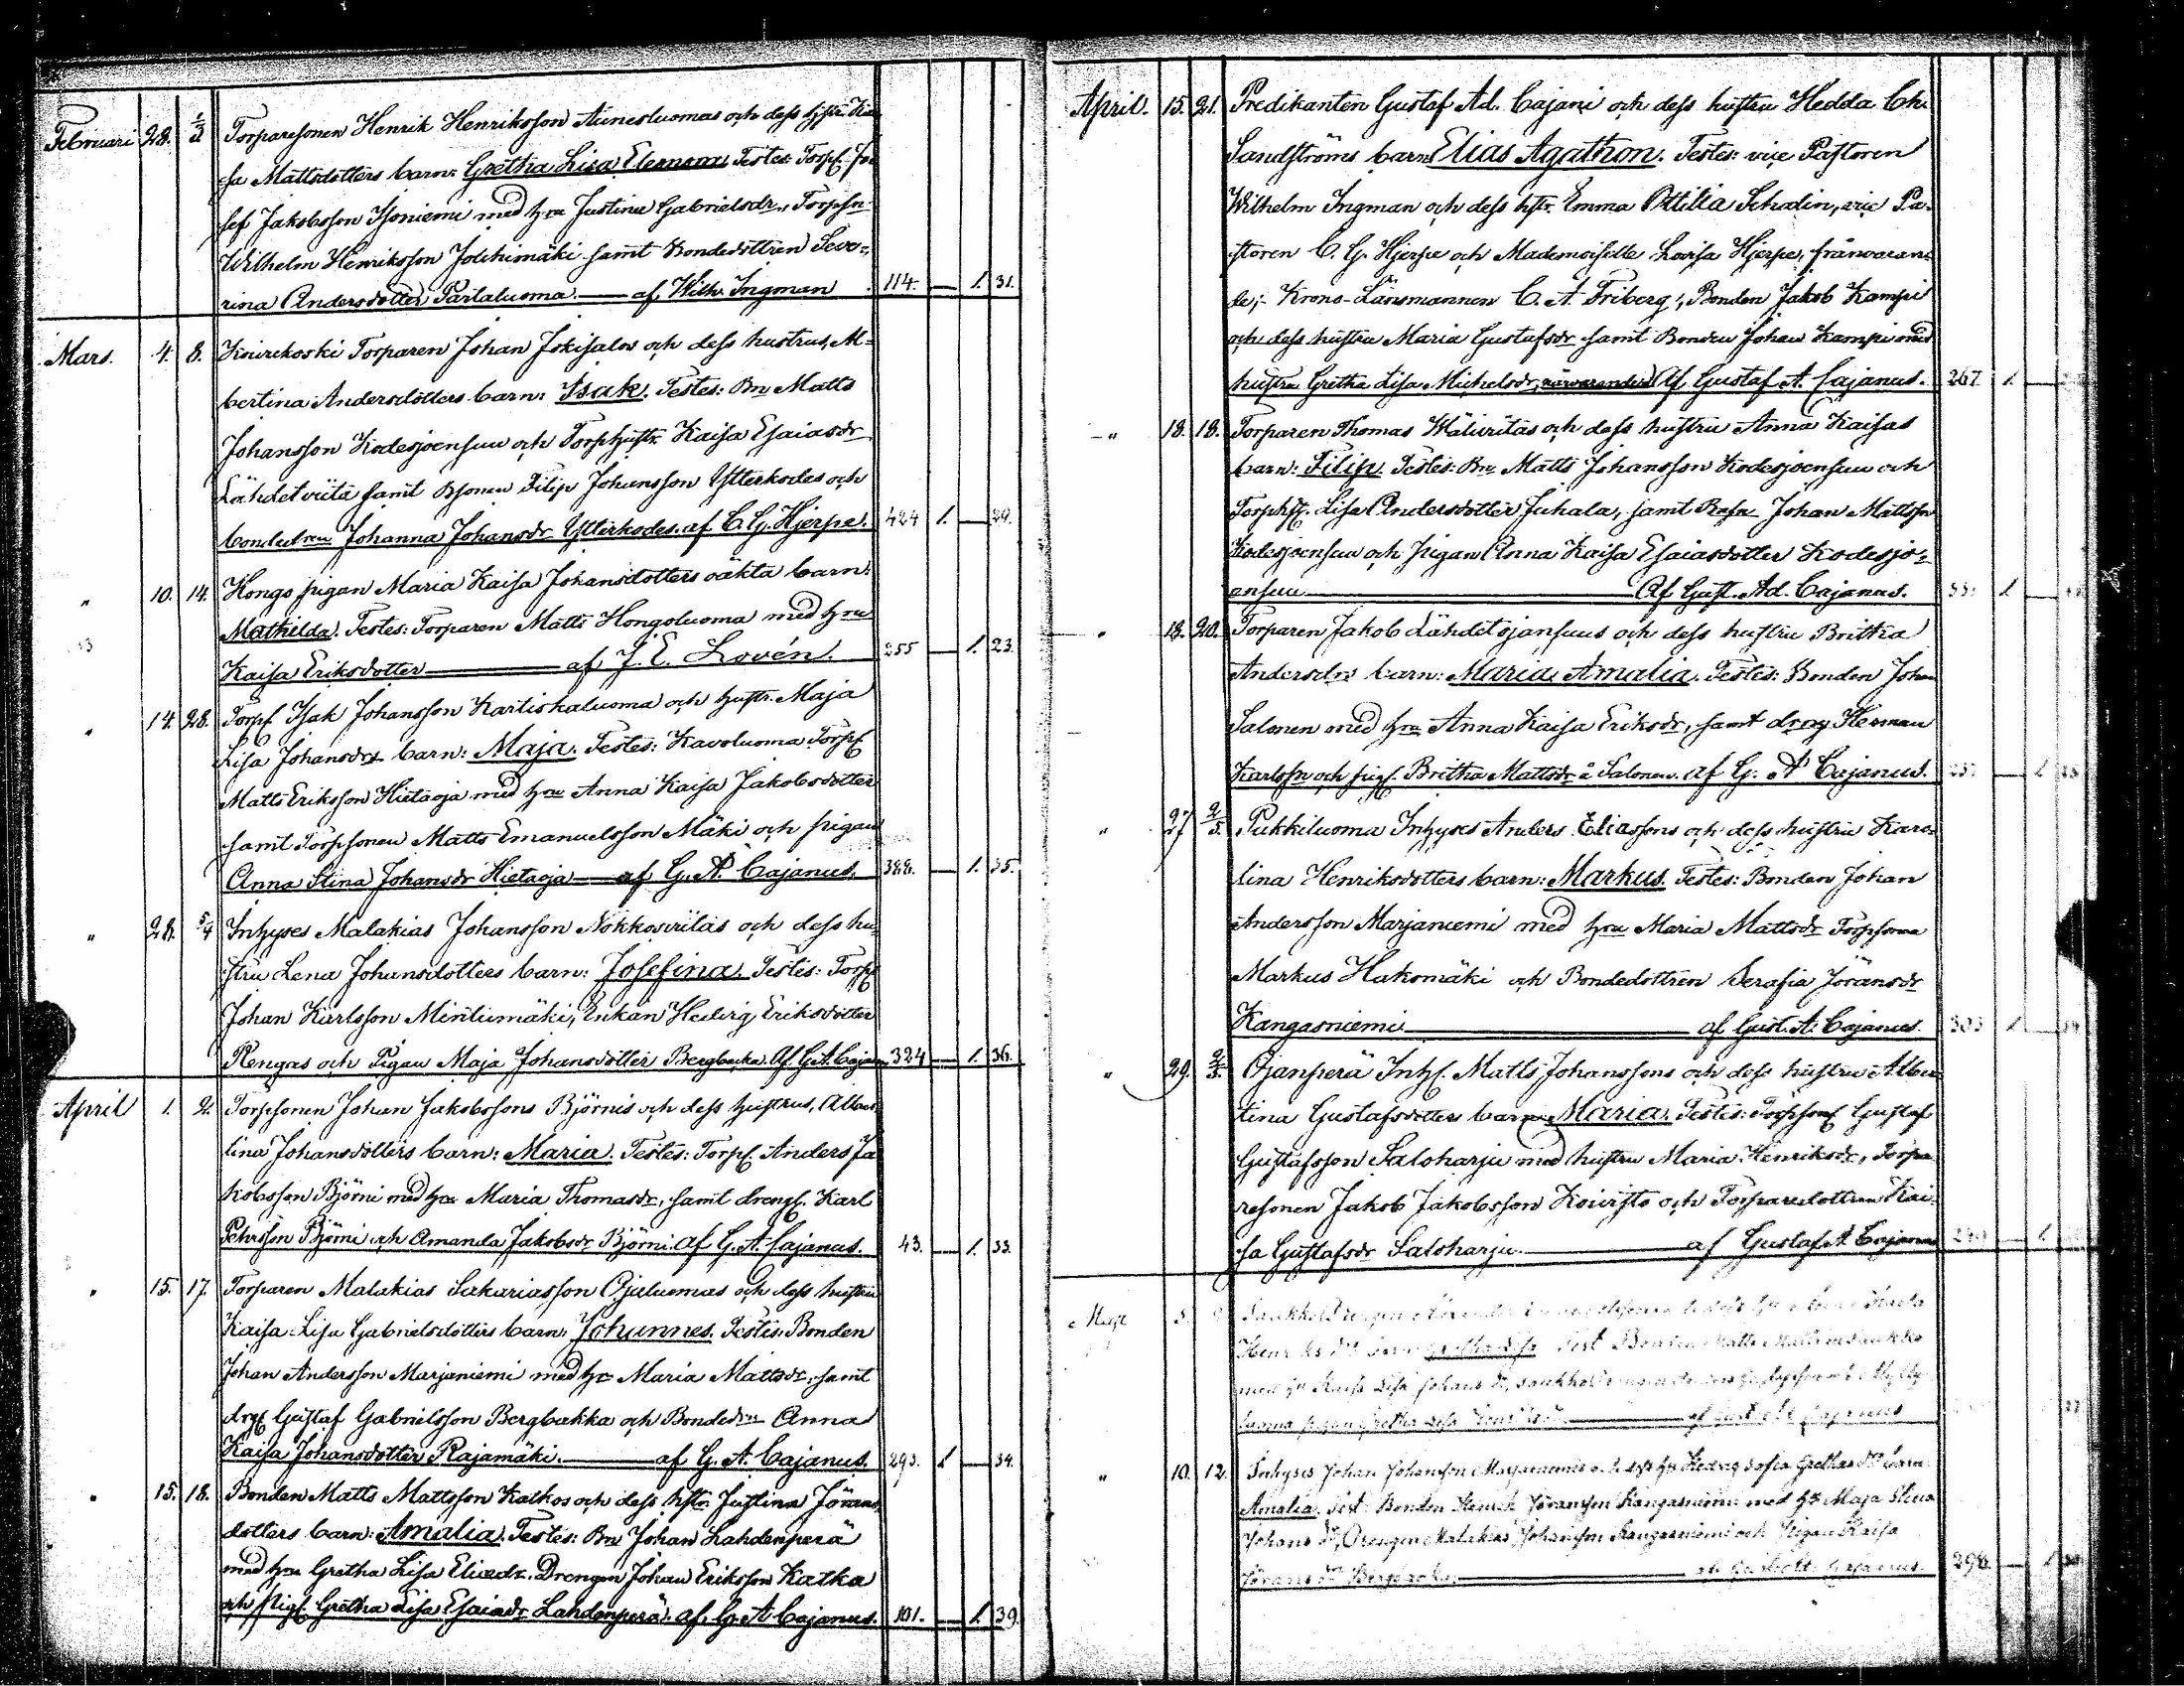 Februari 28. 1/3 Torparesonen Henrik Henriksson Aunesluomas och dess hstr. Kai
sa Mattsdotters barn: Gretha Lisa Eleonora. Testes: Torpf. Jo
sef Jakobsson Isoniemi med hru Justina Gabrielsdr., Torpsn
Wilhelm Henriksson Jouhimäki samt Bondedottren Seve-
rina Andersdotter Parlaluoma. — af Wilh. Ingman 114. — 1. 31.
Mars. 4. 8. Koivikoski Torparen Johan Jokisalos och dess hustrus, Al-
bertina Andersdotters barn: Isak. Testes: Bn Matts
Johansson Kodesjoensuu och Torphustr. Kaisa Esaiasdr
Lähdetviita samt Bsonen Filip Johansson Ytterkodes och
bondedren Johanna Johansdr Ytterkodes. af C. G. Hjerpe. 424 1. — 29.
" 10. 14. Hongo pigan Maria Kaisa Johansdotters oäkta barn:
Mathilda. Testes: Torparen Matts Hongoluoma med hru
Kaisa Eriksdotter — af J. E. Lovén. 255 — 1. 23.
" 14. 28. Torpf Isak Johansson Kartiskaluoma och hustr. Maja
Lisa Johansdrs barn: Maja. Testes: Kavoluoma Torpf
Matts Eriksson Hietaoja med hru Anna Kaisa Jakobsdotter
samt Torpsonen Matts Emanuelsson Mäki och pigan
Anna Stina Johansdr Hietaoja — af G. A. Cajanus. 388. — 1. 35.
" 28. 5/4 Inhyses Malakias Johansson Nokkosviitas och dess hu-
stru Lena Johansdotters barn: Josefina. Testes: Torpf
Johan Karlsson Minttumäki, Enkan Hedvig Eriksdotter
Rengas och Pigan Maja Johansdotter Bergbacka. Af G. A. Cajanus 324 — 1. 36.
April 1. 2. Torpsonen Johan Jakobssons Björnis och dess hustrus, Alber
tina Johansdotters barn: Maria. Testes: Torpf. Anders Ja
kobsson Björni med hru Maria Thomasdr, samt drengf. Karl
Pehrsson Björni och Amanda Jakobsdr Björni. Af G. A. Cajanus. 43. — 1. 33.
" 15. 17. Torparen Malakias Sakariasson Ojaluomas och dess hustru
Kaisa Lisa Gabrielsdotters barn: Johannes. Testes: Bonden
Johan Andersson Marjaniemi med hru Maria Mattsdr, samt
drgf Gustaf Gabrielsson Bergbakka och Bondedren Anna
Kaisa Johansdotter Rajamäki. — af G. A. Cajanus. 293. 1 — 34.
" 15. 18. Bonden Matts Mattsson Katkos och dess hstr. Justina Jörans
dotters barn: Amalia. Testes: Bn Johan Lahdenperä
med hru Gretha Lisa Eliædr. Drengen Johan Eriksson Katka
och pigf. Gretha Lisa Esaiædr Lahdenperä. af G. A. Cajanus. 101. — 1. 39.
April. 15. 21. Predikanten Gustaf Ad. Cajani och dess hustru Hedda Ch.
Sandströms barn Elias Agathon. Testes: vice Pastoren
Wilhelm Ingman och dess hstr. Emma Ottilia Schalin, vic Pa-
storen C. G. Hjerpe och Mademoiselle Lovisa Hjerpe, frånvaran
de; Krono-Länsmannen C. A. Friberg, Bonden Jakob Kampi
och dess hustru Maria Gustafsdr samt Bonden Johan Kampi med
hustru Gretha Lisa Michelsdr, närvarande. Af Gustaf A. Cajanus. 267. 1. —
— " 18. 18. Torparen Thomas Wäliviitas och dess hustru Anna Kaisas
barn: Filip. Testes: Bn. Matts Johansson Kodesjoensuu och
Torphst. Lisa Andersdotter Juhala, samt Johan Mattsson
Kodesjoensuu och pigan Anna Kaisa Esaiasdotter Kodesjo-
ensuu — Af Gust. Ad. Cajanus. 1 —
" 18. 20. Torparen Jakob Lähdetojansuus och dess hustru Britha
Andersdrs barn: Maria Amalia. Testes: Bonden Johan
Salonen med hru Anna Kaisa Eriksdr, samt dreng Herman
Karlsson och pigf. Britha Mattsdr å Salonen. af G. A. Cajanus. — 1
" 27 2/5. Pukkiluoma Inhyses Anders Eliassons och dess hustru Karo-
lina Henriksdotters barn: Markus. Testes: Bonden Johan
Andersson Marjaniemi med hru Maria Mattsdr Torpsonen
Markus Hakomäki och Bondedottren Serafia Jöransdr
Kangasniemi — af Gust. A. Cajanus. 303 1 —
" 29. 2/5. Ojanperä Inhf. Matts Johanssons och dess hustru Alber-
tina Gustafsdotters barn: Maria. Testes: Torpsonf Gustaf
Gustafsson Saloharju med hustru Maria Henriksdr, Torpa-
resonen Jakob Jakobsson Koivisto och Torparedottren Kai-
sa Gustafsdr Saloharju. — af Gustaf A. Cajanus — 1
Maji
Henriks dr barn Gretha Lisa Test Bonden Matts
med hu Kaisa Lisa Johans dr,
pigan Gretha Lisa — af Gust Ad Cajanus
" 10. 12. Inhyses Johan Johansson Marjaniemis och dess hu Hedvig Sofia Grethas dr barn
Amalia. Test: Bonden Henrik Göransson Kangasniemi med hu Maja Stina
Johans dr, Drengen Malakias Johansson Kangasniemi och Pigan Kaisa
Görans dr Bergbacka. — af Gustaf Ad Cajanus. 296. — 1